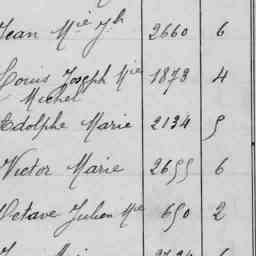 Jean Mie Jh 2660 6
Louis Joseph Mie 1873 4
Michel
Adolphe Marie 2134 5
Victor Marie 2655 6
Octave Julien Mie 650 2